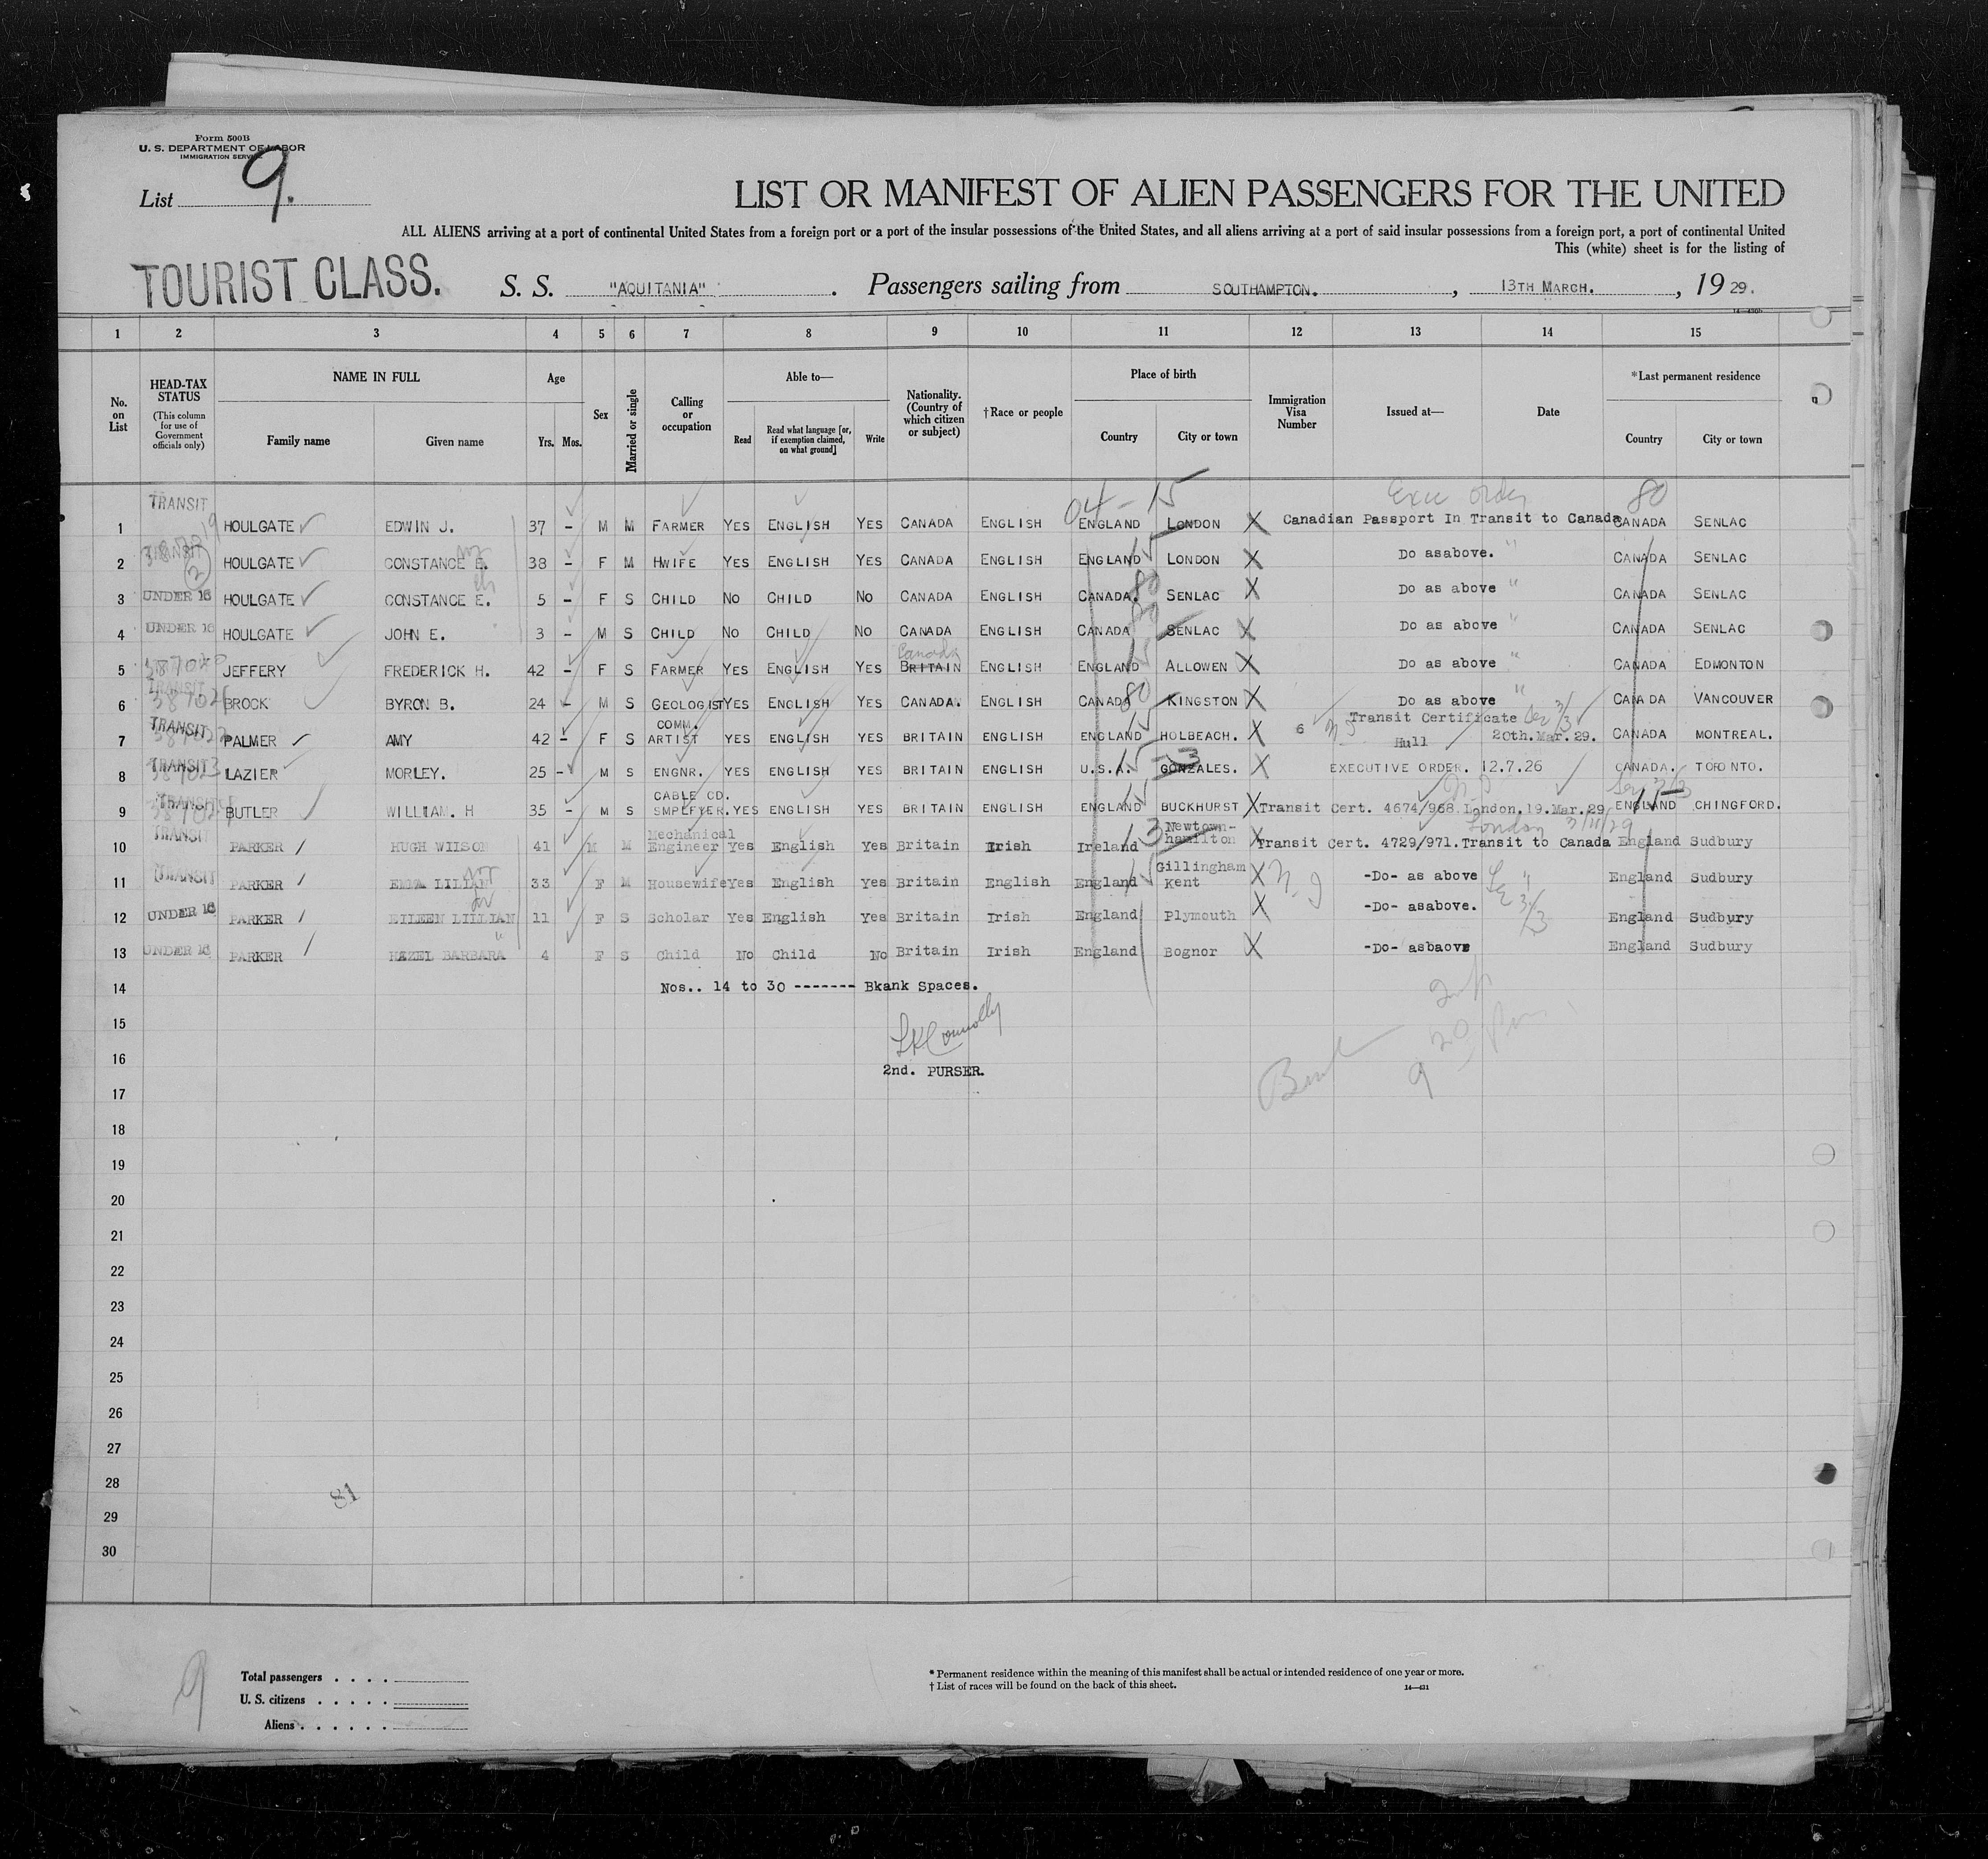 Form 500B
U. S. DEPARTMENT OF LABOR
IMMIGRATION SERVICE
List 9.
LIST OR MANIFEST OF ALIEN PASSENGERS FOR THE UNITED
ALL ALIENS arriving at a port of continental United States from a foreign port or a port of the insular possessions of the United States, and all aliens arriving at a port of said insular possessions from a foreign port, a port of continental United
This (white) sheet is for the listing of
TOURIST CLASS. S. S. "AQUITANIA" . Passengers sailing from SOUTHAMPTON. , 13TH MARCH. , 19 29.
1 2 3 4 5 6 7 8 9 10 11 12 13 14 15
No. on List
HEAD-TAX STATUS (This column for use of Government officials only)
NAME IN FULL Family name Given name
Age Yrs. Mos.
Sex
Married or single
Calling or occupation
Able to— Read Read what language [or, if exemption claimed, on what ground] Write
Nationality. (Country of which citizen or subject)
†Race or people
Place of birth Country City or town
Immigration Visa Number
Issued at—
Date
*Last permanent residence Country City or town
TRANSIT 04-15 Exec order 80
1 HOULGATE EDWIN J. 37 - M M FARMER YES ENGLISH YES CANADA ENGLISH ENGLAND LONDON X Canadian Passport In Transit to Canada CANADA SENLAC
2 TRANSIT HOULGATE CONSTANCE E. 38 - F M HWIFE YES ENGLISH YES CANADA ENGLISH ENGLAND 15 LONDON X Do asabove. " CANADA SENLAC
3 UNDER 16 HOULGATE CONSTANCE E. 5 - F S CHILD NO CHILD NO CANADA ENGLISH CANADA. 80 SENLAC X Do as above " CANADA SENLAC
4 UNDER 16 HOULGATE JOHN E. 3 - M S CHILD NO CHILD NO CANADA ENGLISH CANADA 80 SENLAC X Do as above " CANADA SENLAC
Canada
5 387020 JEFFERY FREDERICK H. 42 - F S FARMER YES ENGLISH YES BRITAIN ENGLISH ENGLAND 15 ALLOWEN X Do as above " CANADA EDMONTON
6 TRANSIT 387021 BROCK BYRON B. 24 - M S GEOLOGIST YES ENGLISH YES CANADA. ENGLISH CANADA 80 KINGSTON X Do as above " CANADA VANCOUVER
7 TRANSIT 387022 PALMER AMY 42 - F S COMM. ARTIST YES ENGLISH YES BRITAIN ENGLISH ENGLAND 15 HOLBEACH. X 6 Transit Certificate Hull 20th.Mar.29. CANADA MONTREAL.
8 TRANSIT 387023 LAZIER MORLEY. 25 - M S ENGNR. YES ENGLISH YES BRITAIN ENGLISH U.S.A. GONZALES. X EXECUTIVE ORDER. 12.7.26 CANADA. TORONTO.
9 TRANSIT BUTLER WILLIAM. H 35 - M S CABLE CO. EMPLOYER. YES ENGLISH YES BRITAIN ENGLISH ENGLAND 15 BUCKHURST X Transit Cert. 4674/968.London,19.Mar.29 ENGLAND 15 CHINGFORD.
London 3/11/29
10 TRANSIT PARKER HUGH WILSON 41 M M Mechanical Engineer Yes English Yes Britain Irish Ireland 13 Newtown-hamilton X Transit Cert. 4729/971.Transit to Canada England Sudbury
11 TRANSIT PARKER EMMA LILIAN 33 F M Housewife Yes English Yes Britain English England 15 Gillingham Kent X -Do- as above " England Sudbury
12 UNDER 16 PARKER EILEEN LILLIAN 11 F S Scholar Yes English Yes Britain Irish England Plymouth X -Do- asabove. England Sudbury
13 UNDER 16 PARKER HAZEL BARBARA 4 F S Child No Child No Britain Irish England Bognor X -Do- asbaove England Sudbury
14 Nos.. 14 to 30 ------- Bkank Spaces.
15
16
2nd. PURSER.
17
18
19
20
21
22
23
24
25
26
27
28
81
29
30
9
Total passengers . . . .
U. S. citizens . . . . .
Aliens . . . . . .
* Permanent residence within the meaning of this manifest shall be actual or intended residence of one year or more.
† List of races will be found on the back of this sheet.
14—431